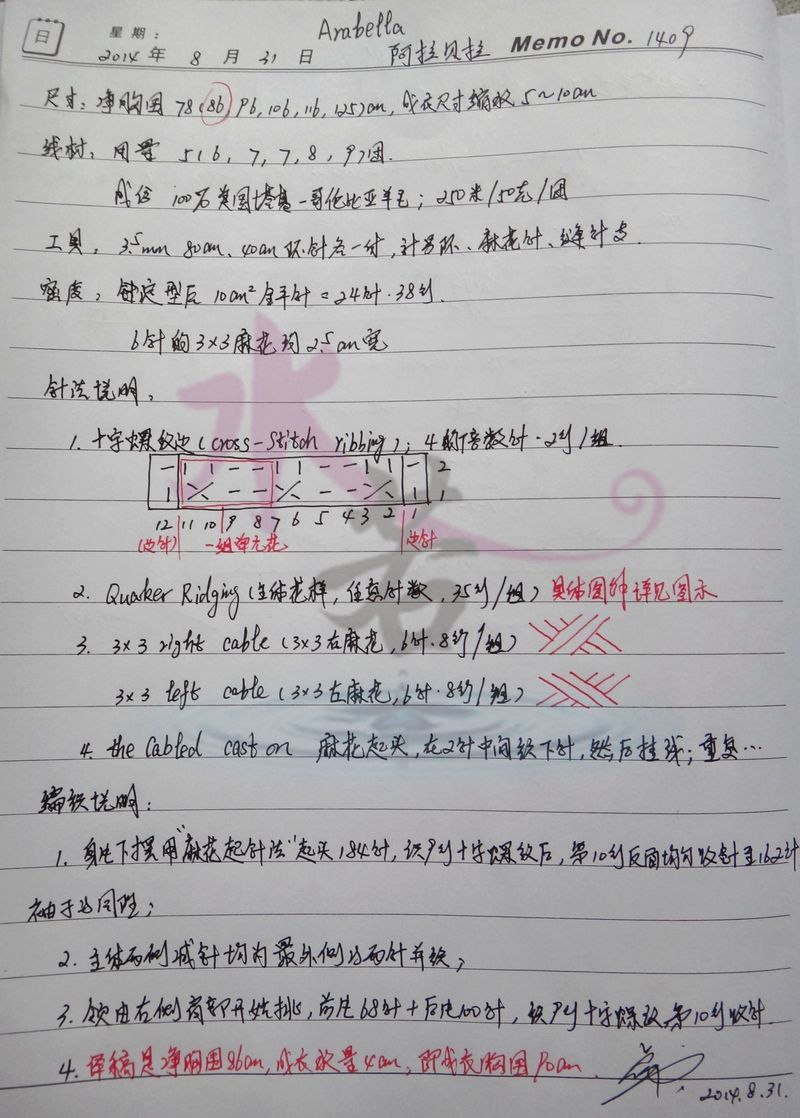 日 星期： Arabella
2014 年 8 月 31 日 阿拉贝拉 Memo No. 1409
尺寸：净胸围 78(86, 96, 106, 116, 125)cm, 成衣尺寸缩放 5～10cm
线材：用量 5(6, 7, 7, 8, 9)团.
成份 100% 美国塔基－哥伦比亚羊毛；250米/50克/团
工具：3.5mm 80cm、40cm 环针各一付，计号环、麻花针、缝针支.
密度：针定型后 10cm²全平针 = 24针·38行.
6针的3×3麻花约2.5cm宽
针法说明：
1. 十字螺纹边(Cross-Stitch ribbing)；4的倍数针·2行/组.
2
1
12 11 10 9 8 7 6 5 4 3 2 1
(边针) 一组单元花 边针
2. Quaker Ridging (主体花样，任意针数，35行/组) 具体图解详见图示
3. 3×3 right cable (3×3右麻花，6针·8行/组)
3×3 left cable (3×3左麻花，6针·8行/组)
4. the Cabled cast on 麻花起头，在2针中间织下针，然后挂线；重复…
编织说明：
1. 身片下摆用"麻花起针法"起头184针，织9行十字螺纹后，第10行反面均匀收针至162针
袖子与同理；
2. 主体两侧减针均为最外侧与两针并织；
3. 领由右侧肩部开始挑，前片68针+后片100针，织9行十字螺纹第10行收针.
4. 译稿是净胸围86cm，成衣放量4cm，即成衣胸围90cm.
2014.8.31.
水若